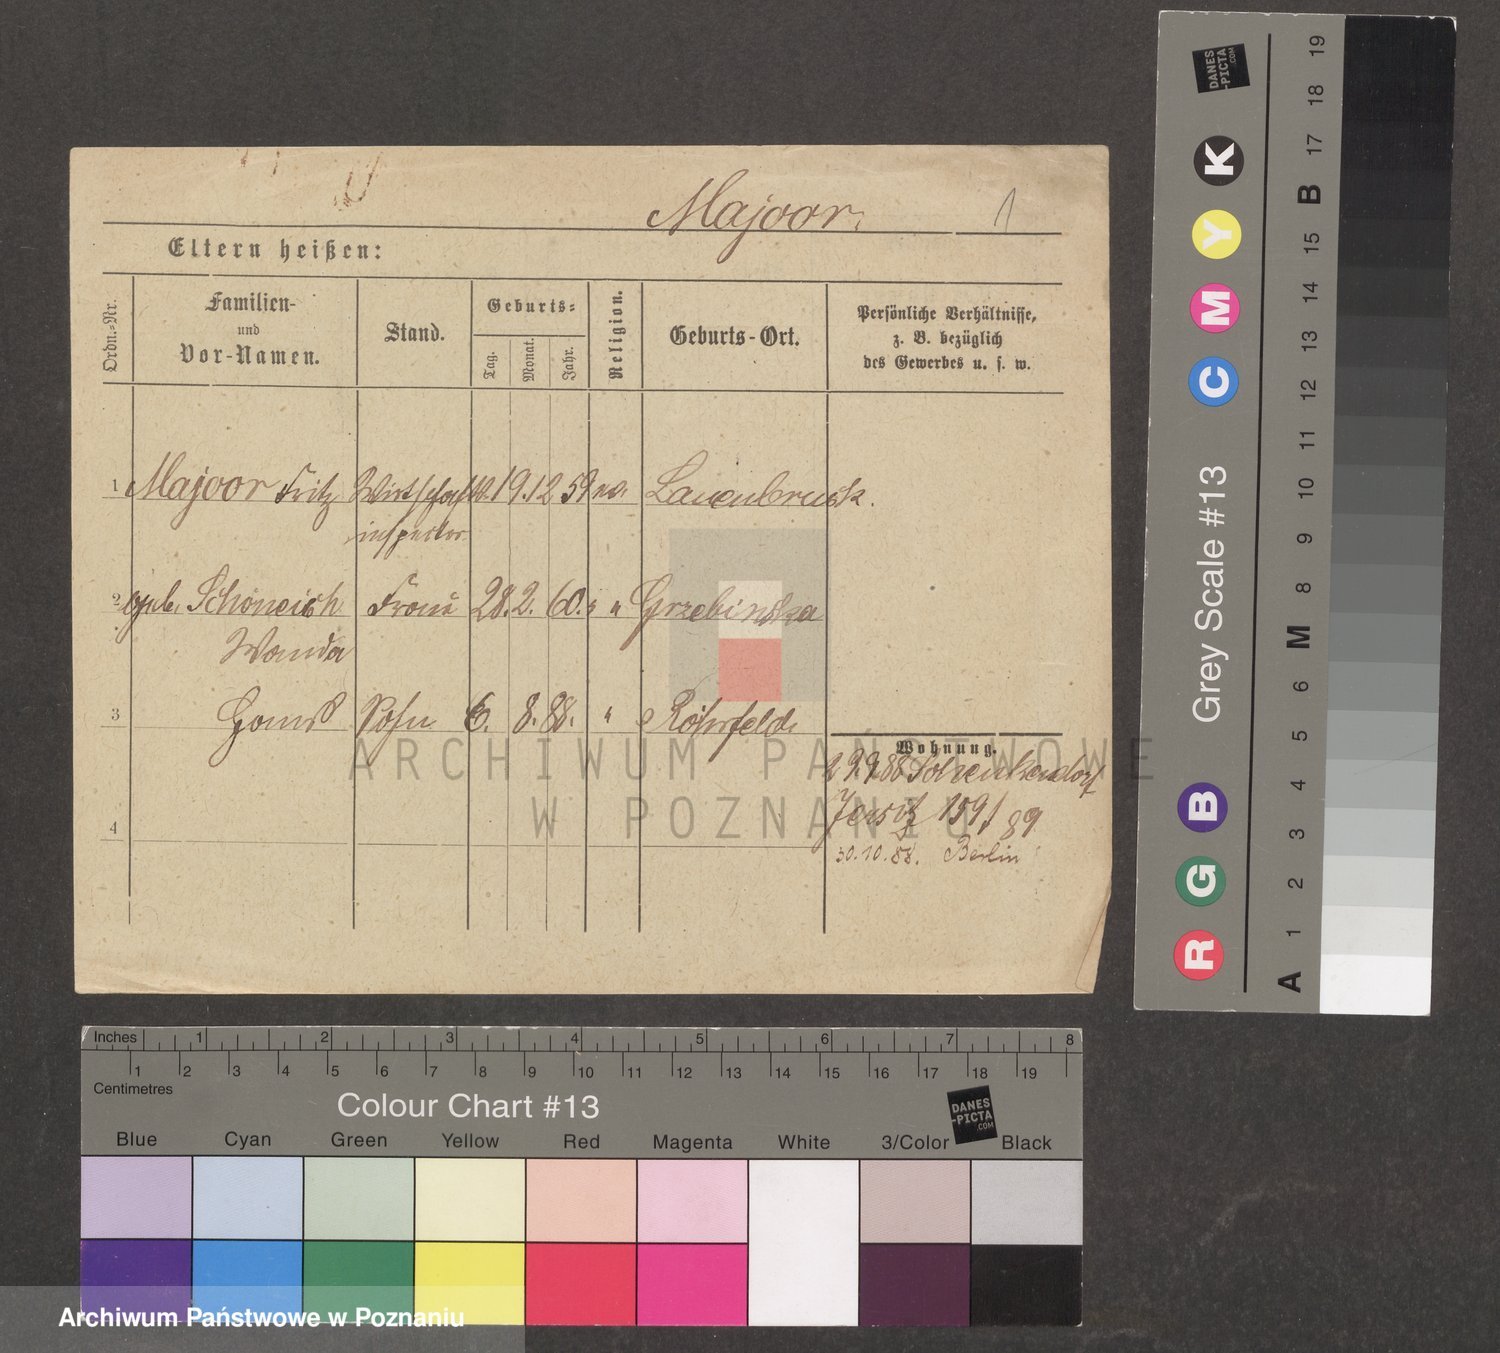 Majoor.
1
Eltern heißen:
Ordn.-Nr.
Familien-
und
Vor-Namen.
Stand.
Geburts-
Tag.
Monat.
Jahr.
Religion.
Geburts-Ort.
Persönliche Verhältnisse,
z. B. bezüglich
des Gewerbes u. s. w.
1 Majoor Fritz Wirtschafts 19.12 59 ev. Lauenbruck.
inspector
2 geb. Schöneich Frau 28.2. 60. " " Grzebinska
Wanda
3 Hans Sohn 6. 8. 88. " Röhrfeld
Wohnung.
29.9.88 Schenkendorf
Jersitz 159/89
30.10.88. Berlin
4
ARCHIWUM PAŃSTWOWE
W POZNANIU
Inches 1 2 3 4 5 6 7 8
1 2 3 4 5 6 7 8 9 10 11 12 13 14 15 16 17 18 19
Centimetres
Colour Chart #13
DANES
-PICTA
.COM
Blue Cyan Green Yellow Red Magenta White 3/Color Black
Archiwum Państwowe w Poznaniu
DANES
-PICTA
.COM
R G B Grey Scale #13 C M Y K
A 1 2 3 4 5 6 M 8 9 10 11 12 13 14 15 B 17 18 19